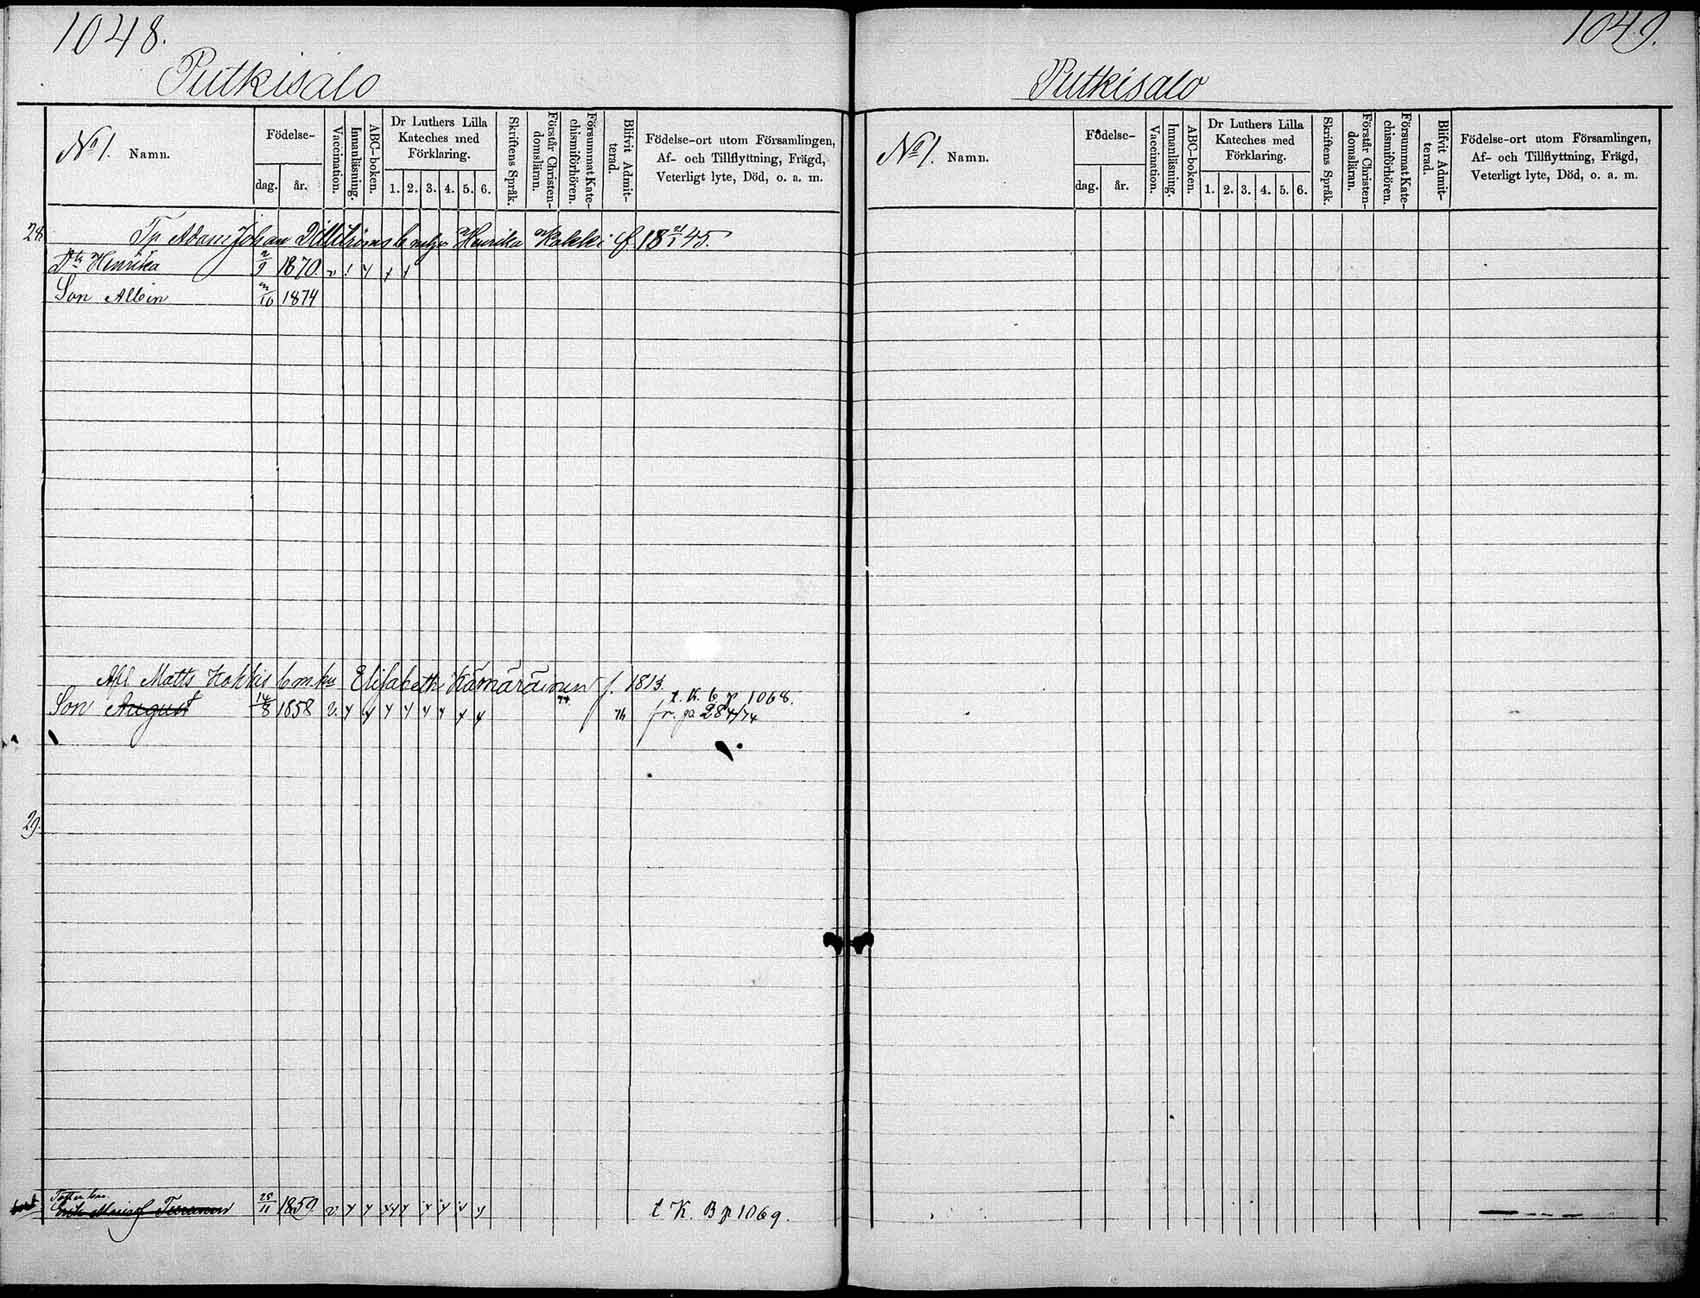 1048.
Putkisalo
No 1. Namn.
Födelse-
dag. år.
Vaccination.
Innanläsning.
ABC-boken.
Dr Luthers Lilla Kateches med Förklaring.
1. 2. 3. 4. 5. 6.
Skriftens Språk.
Förstår Christen-domsläran.
Försummat Kate-chismiförhören.
Blifvit Admit-terad.
Födelse-ort utom Församlingen,
Af- och Tillflyttning, Frägd,
Veterligt lyte, Död, o. a. m.
28
Adam Johan Dillströms Henrika Kokki f. 18 45.
Dtr Henrika 2/9 1870
Son Albin 1874
Afl. Matts Kokkis Elisabeth Kämäräinen f. 1813.
Son August 14/8 1858 v. t. K. b p 1068.
fr. pa 284/74
29.
25/11 1859 t K. B p 1069.
1049.
Putkisalo
No 1. Namn.
Födelse-
dag. år.
Vaccination.
Innanläsning.
ABC-boken.
Dr Luthers Lilla Kateches med Förklaring.
1. 2. 3. 4. 5. 6.
Skriftens Språk.
Förstår Christen-domsläran.
Försummat Kate-chismiförhören.
Blifvit Admit-terad.
Födelse-ort utom Församlingen,
Af- och Tillflyttning, Frägd,
Veterligt lyte, Död, o. a. m.